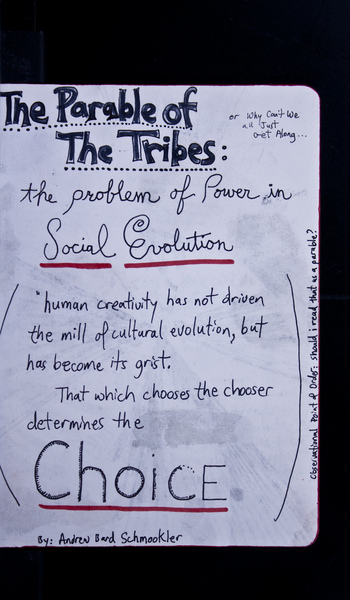 The Parable of
The Tribes:
or Why Can't We
all Just
Get Along...
the problem of Power in
Social Evolution
"human creativity has not driven
the mill of cultural evolution, but
has become its grist.
That which chooses the chooser
determines the
CHOICE
By: Andrew Bard Schmookler
Observational Point of Order: should i read that as a parable?